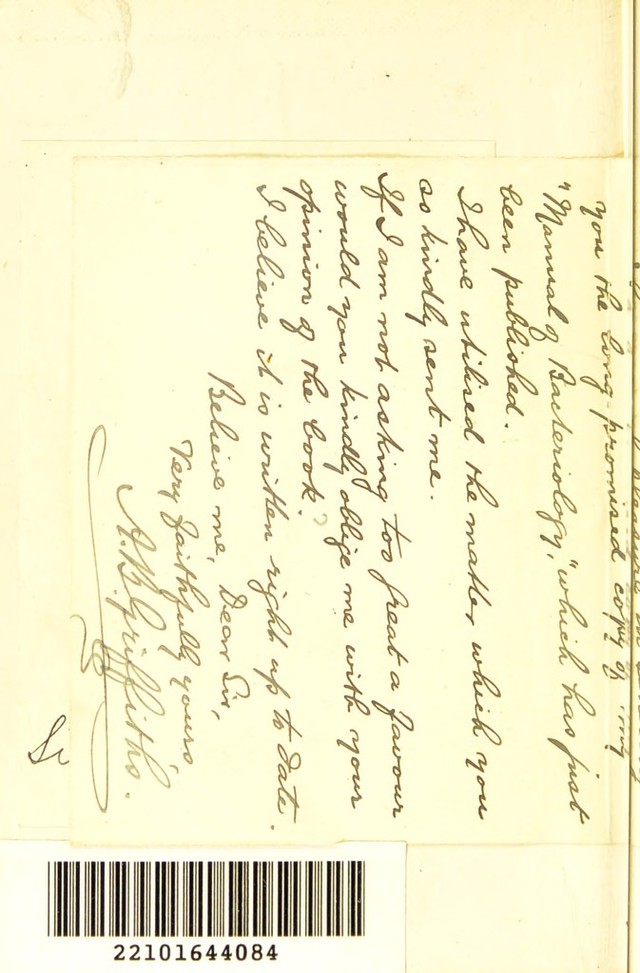 you the long-promised copy of my
"Manual of Bacteriology," which has just
been published.
I have utilised the matter which you
as kindly sent me.
If I am not asking too great a favour
would you kindly oblige me with your
opinion of the book?
I believe it is written right up to date.
Believe me, Dear Sir,
Very faithfully yours
A. B. Griffiths.
22101644084